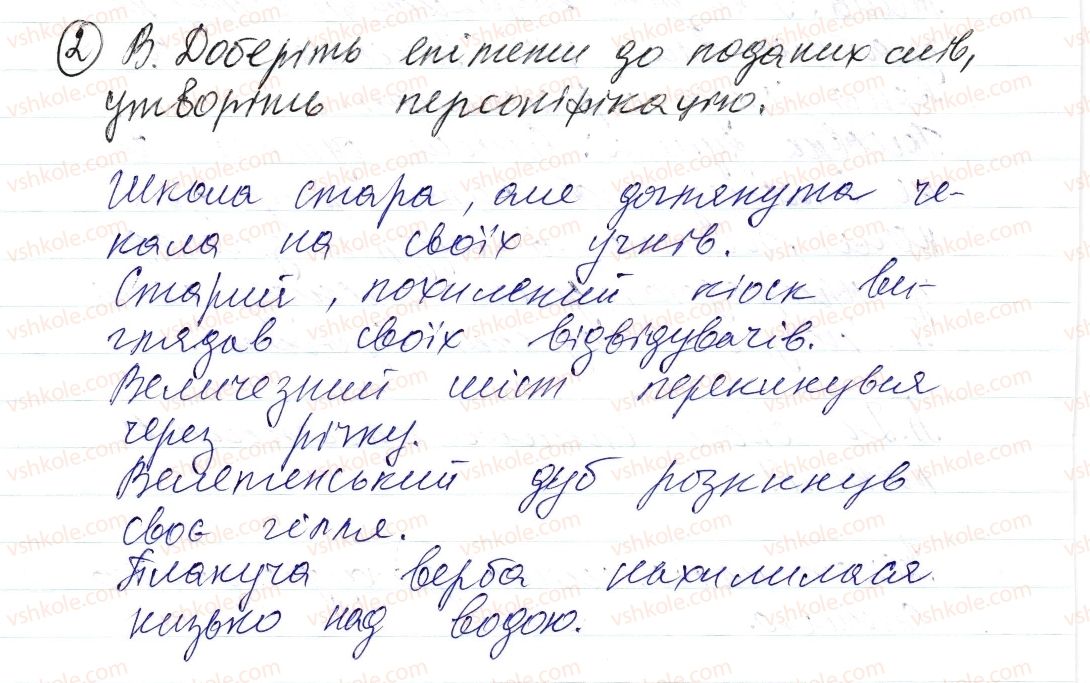 2 В. Доберіть епітети до поданих слів,
утворіть персоніфікацію.
Школа стара, але дотянута че-
кала на своїх учнів.
Старий, похилений кіоск ви-
глядав своїх відвідувачів.
Величезний міст перекинувся
через річку.
Велетенський дуб розкинув
своє гілля.
Плакуча верба нахилилася
низько над водою.